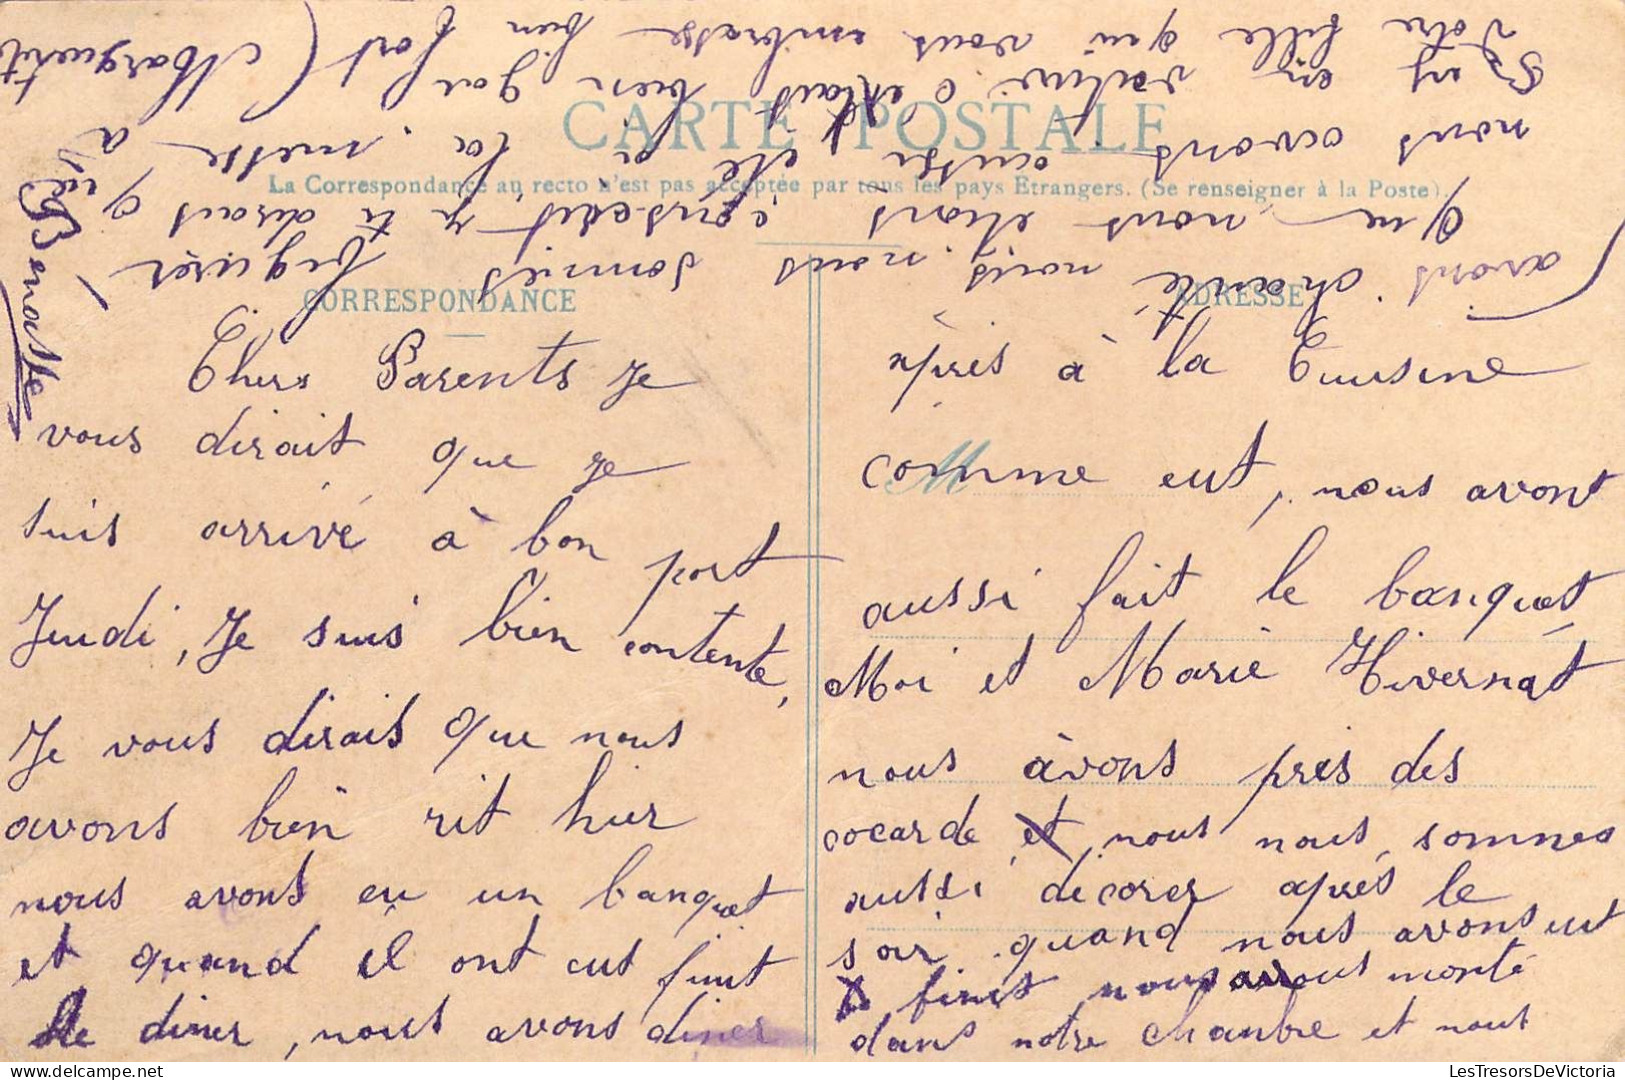 CARTE POSTALE
La Correspondance au recto n'est pas acceptée par tous les pays Etrangers. (Se renseigner à la Poste).
CORRESPONDANCE
Chers Parents je
vous dirait que je
suis arrivé à bon port
Jeudi, Je suis bien contente,
Je vous dirais que nous
avons bien rit hier
nous avons eu un banquet
et quand il ont eut finit
le diner, nous avons diner
ADRESSE
après à la Cuisine
M
comme eut, nous avont
aussi fait le banquet,
Moi et Marie Hivernat
nous avons pris des
cocarde et, nous nous sommes
aussi décorer après le
soir quand nous avons eut
finit nous avons monté
dans notre chambre et nous
avons chanté nous nous sommes figurés
que nous étions ti dirais que
nous avons aussi été à la messe à
en voiture c'était bien gai
Votre fille qui vous embrasse bien fort (Marguerite